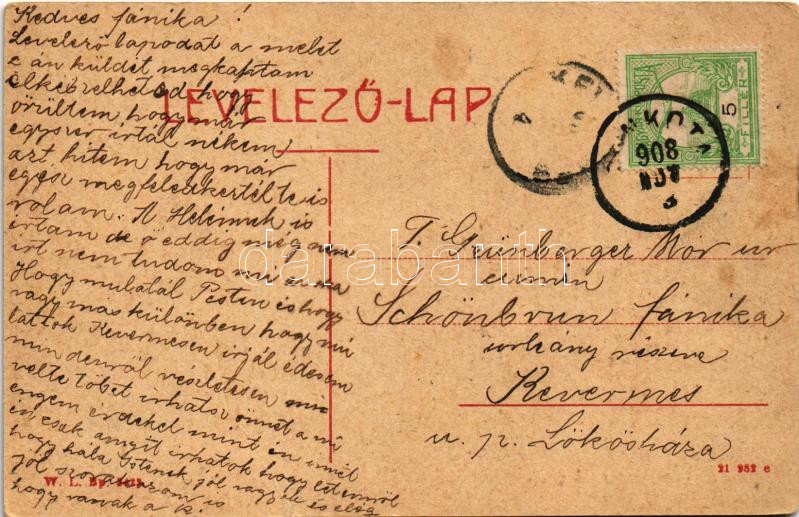 Kedves fánika!
Levelező lapodat a melet
e án küldet megkaptam
elkébzelheted hogy
örültem, hogy már
egyszer irtál nékem
azt hitem hogy már
egész megfeledkeztél te is
rolam. A Helénnek is
irtam de ő eddig még nem
irt nem tudom mi
Hogy mulatál Pesten és hogy
vagy más különben hogy mu
lattok Kevermesen irjál édesem
min denröl részletesen
velte töbet irhatsz onnét a mi
engem érdekel mint én inét
én csak anyit irhatok hogy
hogy hála Istenek jól vagyok és elég
jól
hogy vannak a
LEVELEZŐ-LAP
5
FILLÉR
908
NOV
3
4
T. Grünberger Mór ur
cimén
Schönbrun fánika
urleány részére
Kevermes
u. p. Lökösháza
W. L. Bp.
21 952 e
darabanth